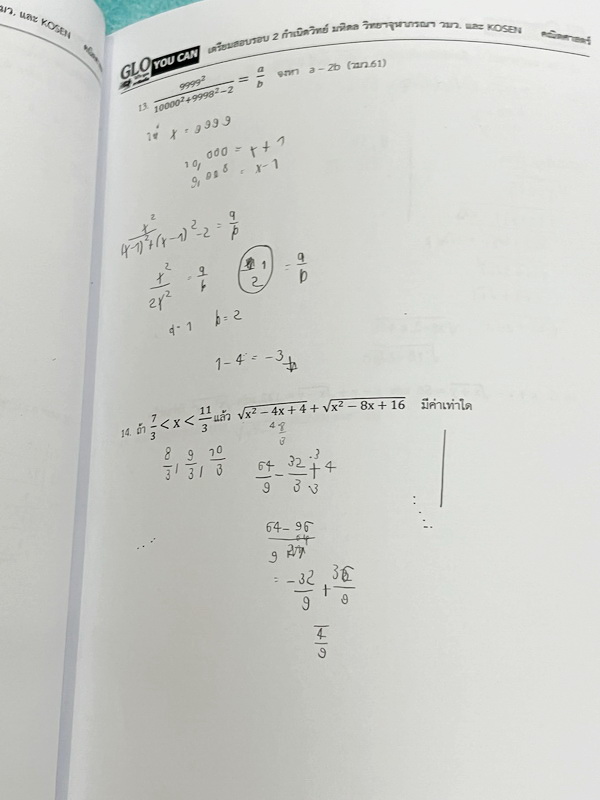 มว. และ KOSEN
GLO YOU CAN เตรียมสอบรอบ 2 กำเนิดวิทย์ มหิดล วิทยาจุฬาภรณฯ วมว. และ KOSEN คณิตศาสตร์
13. 9999²/(10000²+9998²−2) = a/b จงหา a − 2b (วมว.61)
ให้ x = 9999
10,000 = x + 1
9,998 = x - 1
x²/((x-1)²+(x-1)²-2) = a/b
x²/2x² = a/b 1/2 = a/b
a-1 b=2
1-4 = -3
14. ถ้า 7/3 < x < 11/3 แล้ว √(x² − 4x + 4) + √(x² − 8x + 16) มีค่าเท่าใด
8/3, 9/3, 10/3
64/9 - 32/3 + 4
64-96
= -32/9 + 36/9
4/9